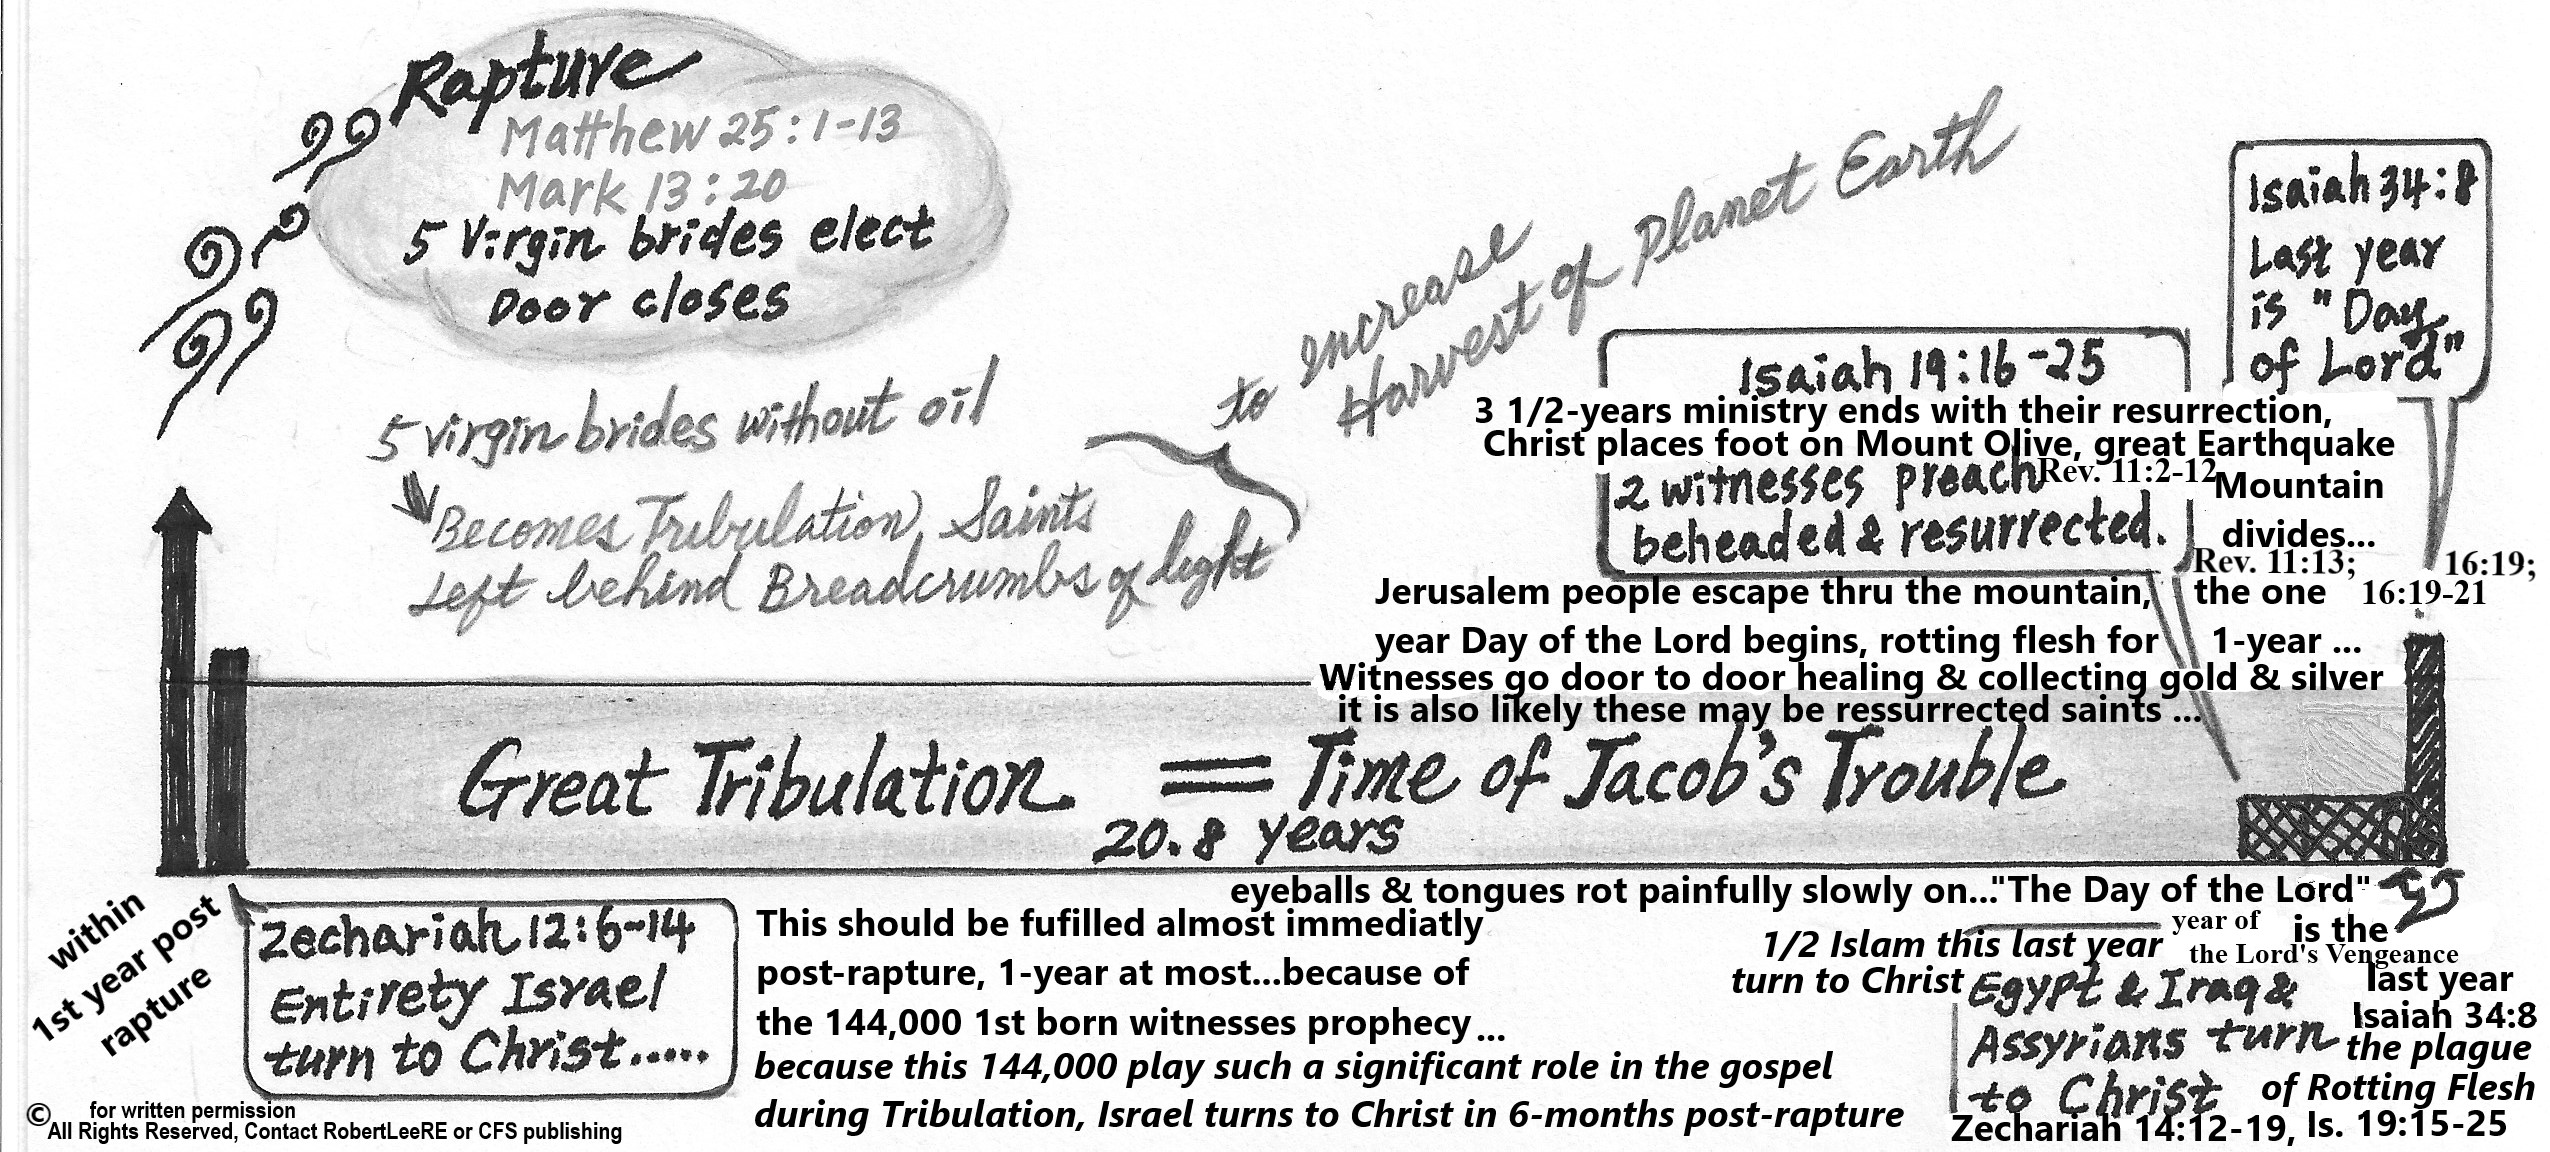 Rapture
Matthew 25:1-13
Mark 13:20
5 Virgin brides elect
Door closes
5 virgin brides without oil
Becomes Tribulation Saints
Left behind Breadcrumbs of light
to increase
Harvest of Planet Earth
Isaiah 34:8
Last year
is "Day
of Lord"
Isaiah 19:16-25
3 1/2-years ministry ends with their resurrection,
Christ places foot on Mount Olive, great Earthquake
2 witnesses preach Rev. 11:2-12 Mountain
beheaded & resurrected. divides...
Rev. 11:13; 16:19;
Jerusalem people escape thru the mountain, the one 16:19-21
year Day of the Lord begins, rotting flesh for 1-year ...
Witnesses go door to door healing & collecting gold & silver
it is also likely these may be ressurrected saints ...
Great Tribulation = Time of Jacob's Trouble
20.8 years
eyeballs & tongues rot painfully slowly on..."The Day of the Lord"
within
1st year post
rapture
Zechariah 12:6-14
Entirety Israel
turn to Christ.....
This should be fufilled almost immediatly
post-rapture, 1-year at most...because of
the 144,000 1st born witnesses prophecy...
because this 144,000 play such a significant role in the gospel
during Tribulation, Israel turns to Christ in 6-months post-rapture
1/2 Islam this last year
turn to Christ
year of
the Lord's Vengeance
is the
last year
Isaiah 34:8
the plague
of Rotting Flesh
Egypt & Iraq &
Assyrians turn
to Christ
Zechariah 14:12-19, Is. 19:15-25
© for written permission
All Rights Reserved, Contact RobertLeeRE or CFS publishing